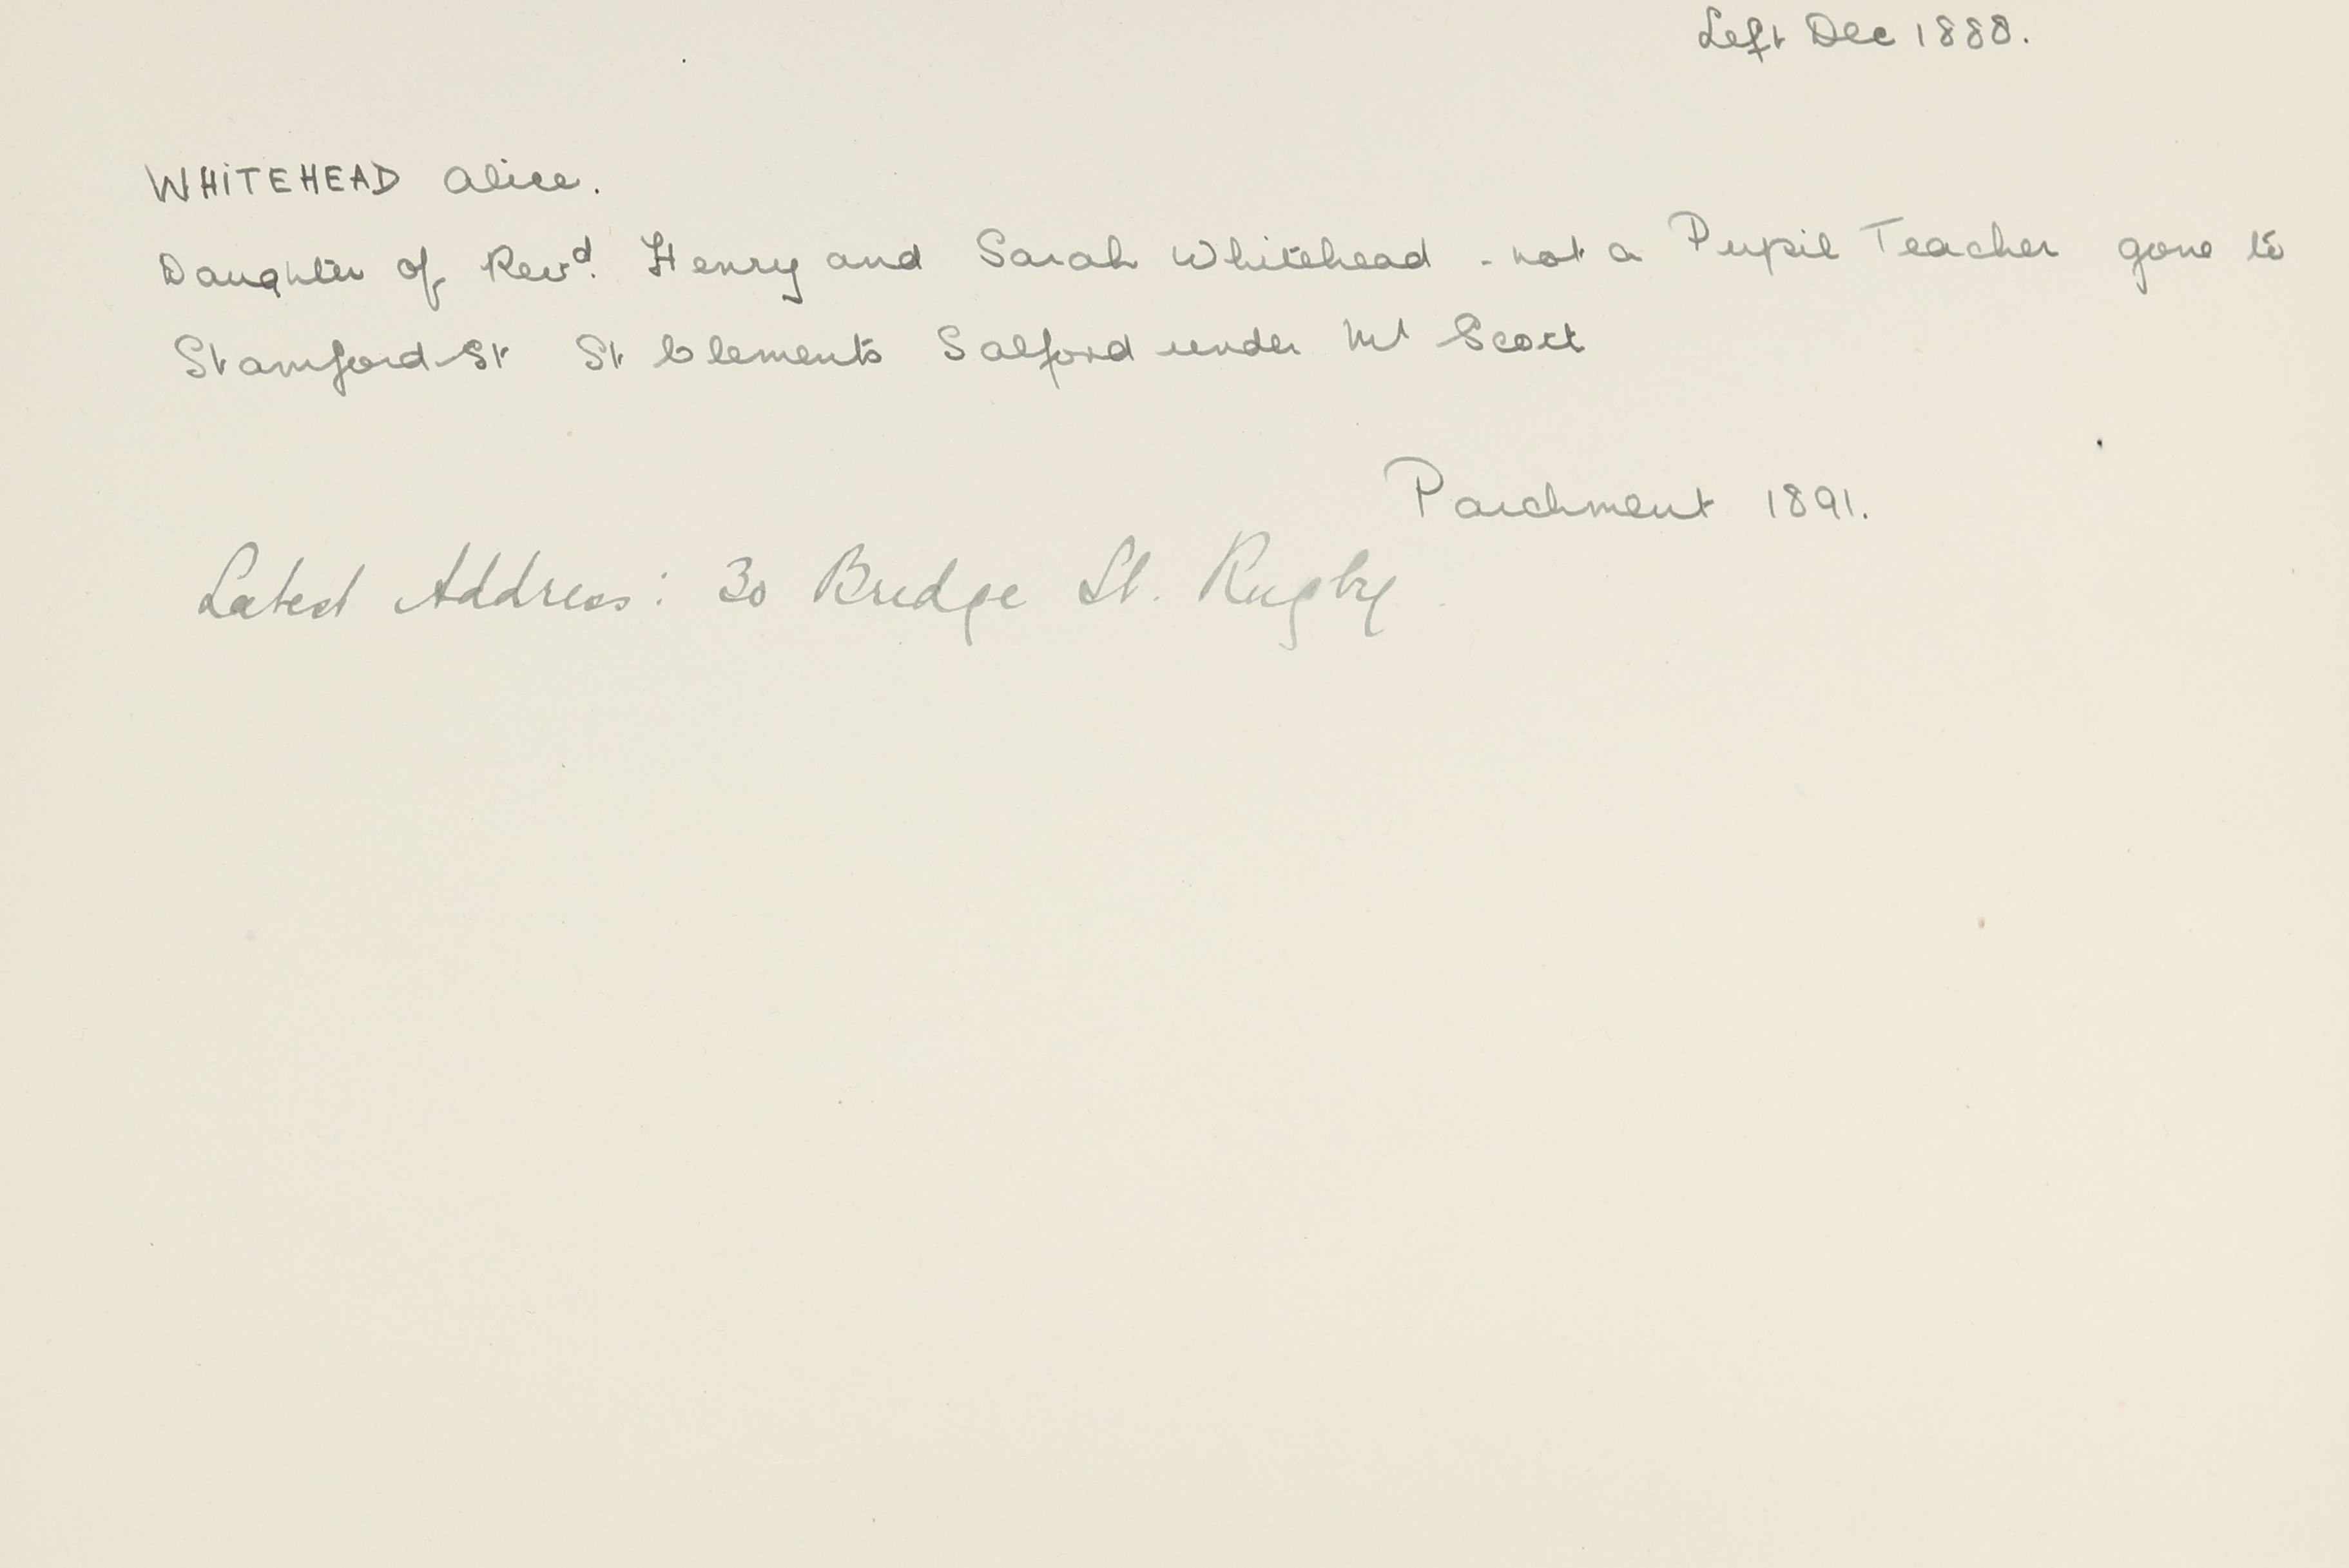 Left Dec 1888.
WHITEHEAD Alice.
Daughter of Revd. Henry and Sarah Whitehead - not a Pupil Teacher gone to
Stamford St St Clements Salford under Mr Scott
Parchment 1891.
Latest Address: 30 Bridge St. Rugby